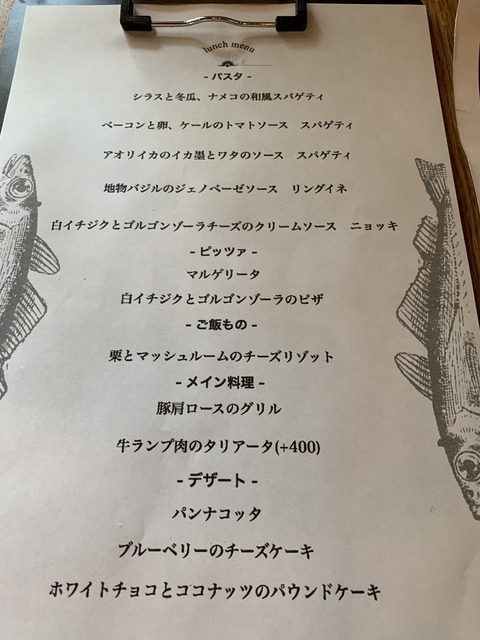 lunch menu
- パスタ -
シラスと冬瓜、ナメコの和風スパゲティ
ベーコンと卵、ケールのトマトソース　スパゲティ
アオリイカのイカ墨とワタのソース　スパゲティ
地物バジルのジェノベーゼソース　リングイネ
白イチジクとゴルゴンゾーラチーズのクリームソース　ニョッキ
- ピッツァ -
マルゲリータ
白イチジクとゴルゴンゾーラのピザ
- ご飯もの -
栗とマッシュルームのチーズリゾット
- メイン料理 -
豚肩ロースのグリル
牛ランプ肉のタリアータ(+400)
- デザート -
パンナコッタ
ブルーベリーのチーズケーキ
ホワイトチョコとココナッツのパウンドケーキ